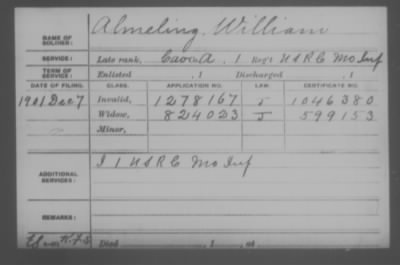 NAME OF SOLDIER: Almeling, William
SERVICE: Late rank, Co. A, 1 Reg't U S R C Mo Inf
TERM OF SERVICE: Enlisted , 1 Discharged , 1
DATE OF FILING. CLASS. APPLICATION NO. LAW. CERTIFICATE NO.
1901 Dec 7 Invalid, 1278167 J 1046380
Widow, 824023 J 599153
Minor,
ADDITIONAL SERVICES: I 1 U S R C Mo Inf
REMARKS:
Died , 1 , at